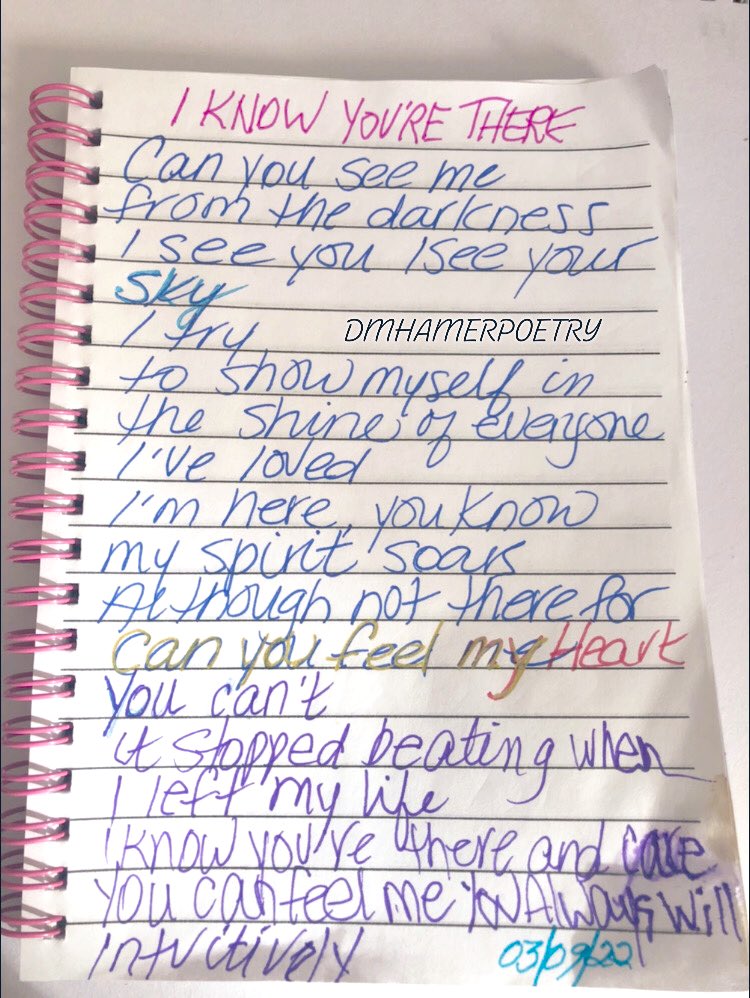 I KNOW YOU'RE THERE
Can you see me
from the darkness
I see you I see your
sky
I try
DMHAMERPOETRY
to show myself in
the shine of everyone
I've loved
I'm here, you know
my spirit soars
Although not there for
Can you feel my Heart
You can't
it stopped beating when
I left my life
I know you're there and care
You can feel me You Always Will
intuitively
03/09/22